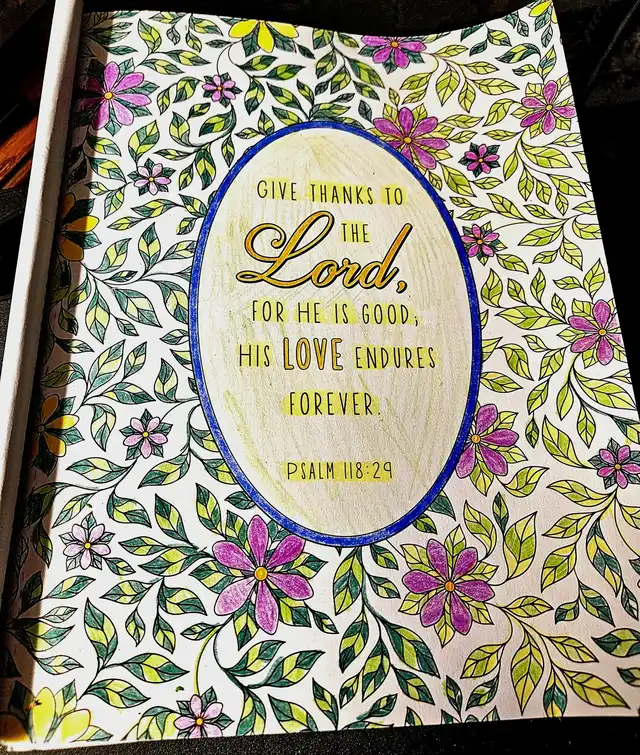 GIVE THANKS TO
THE
Lord,
FOR HE IS GOOD;
HIS LOVE ENDURES
FOREVER.
PSALM 118:29